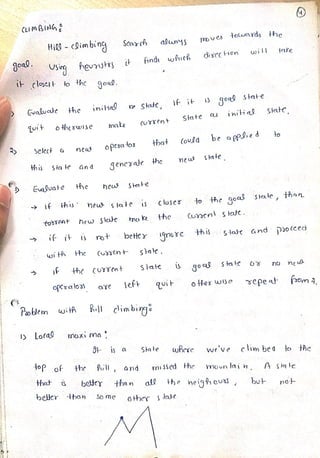 4
CLIMBING:
Hill-climbing Search always moves towards the
goal. Using heuristis it finds which direction will take
it closest to the goal.
Evaluate the initial state, If it is goal state
quit otherwise make current state as initial state.
2) Select a new operator that could be applied to
this state and generate the new state.
Evaluate the new state
→ if this new state is closer to the goal state, than
new state make the current state.
→ if it is not better ignore this state and proceed
with the current state.
→ if the current state is goal state or no new
operators are left quit otherwise repeat from 2.
Problem with hill climbing:
1) Local maxima:
It is a state where we've climbed to the
top of the hill, and missed the mountain. A state
that is better than all the neighours, but not
better than some other state